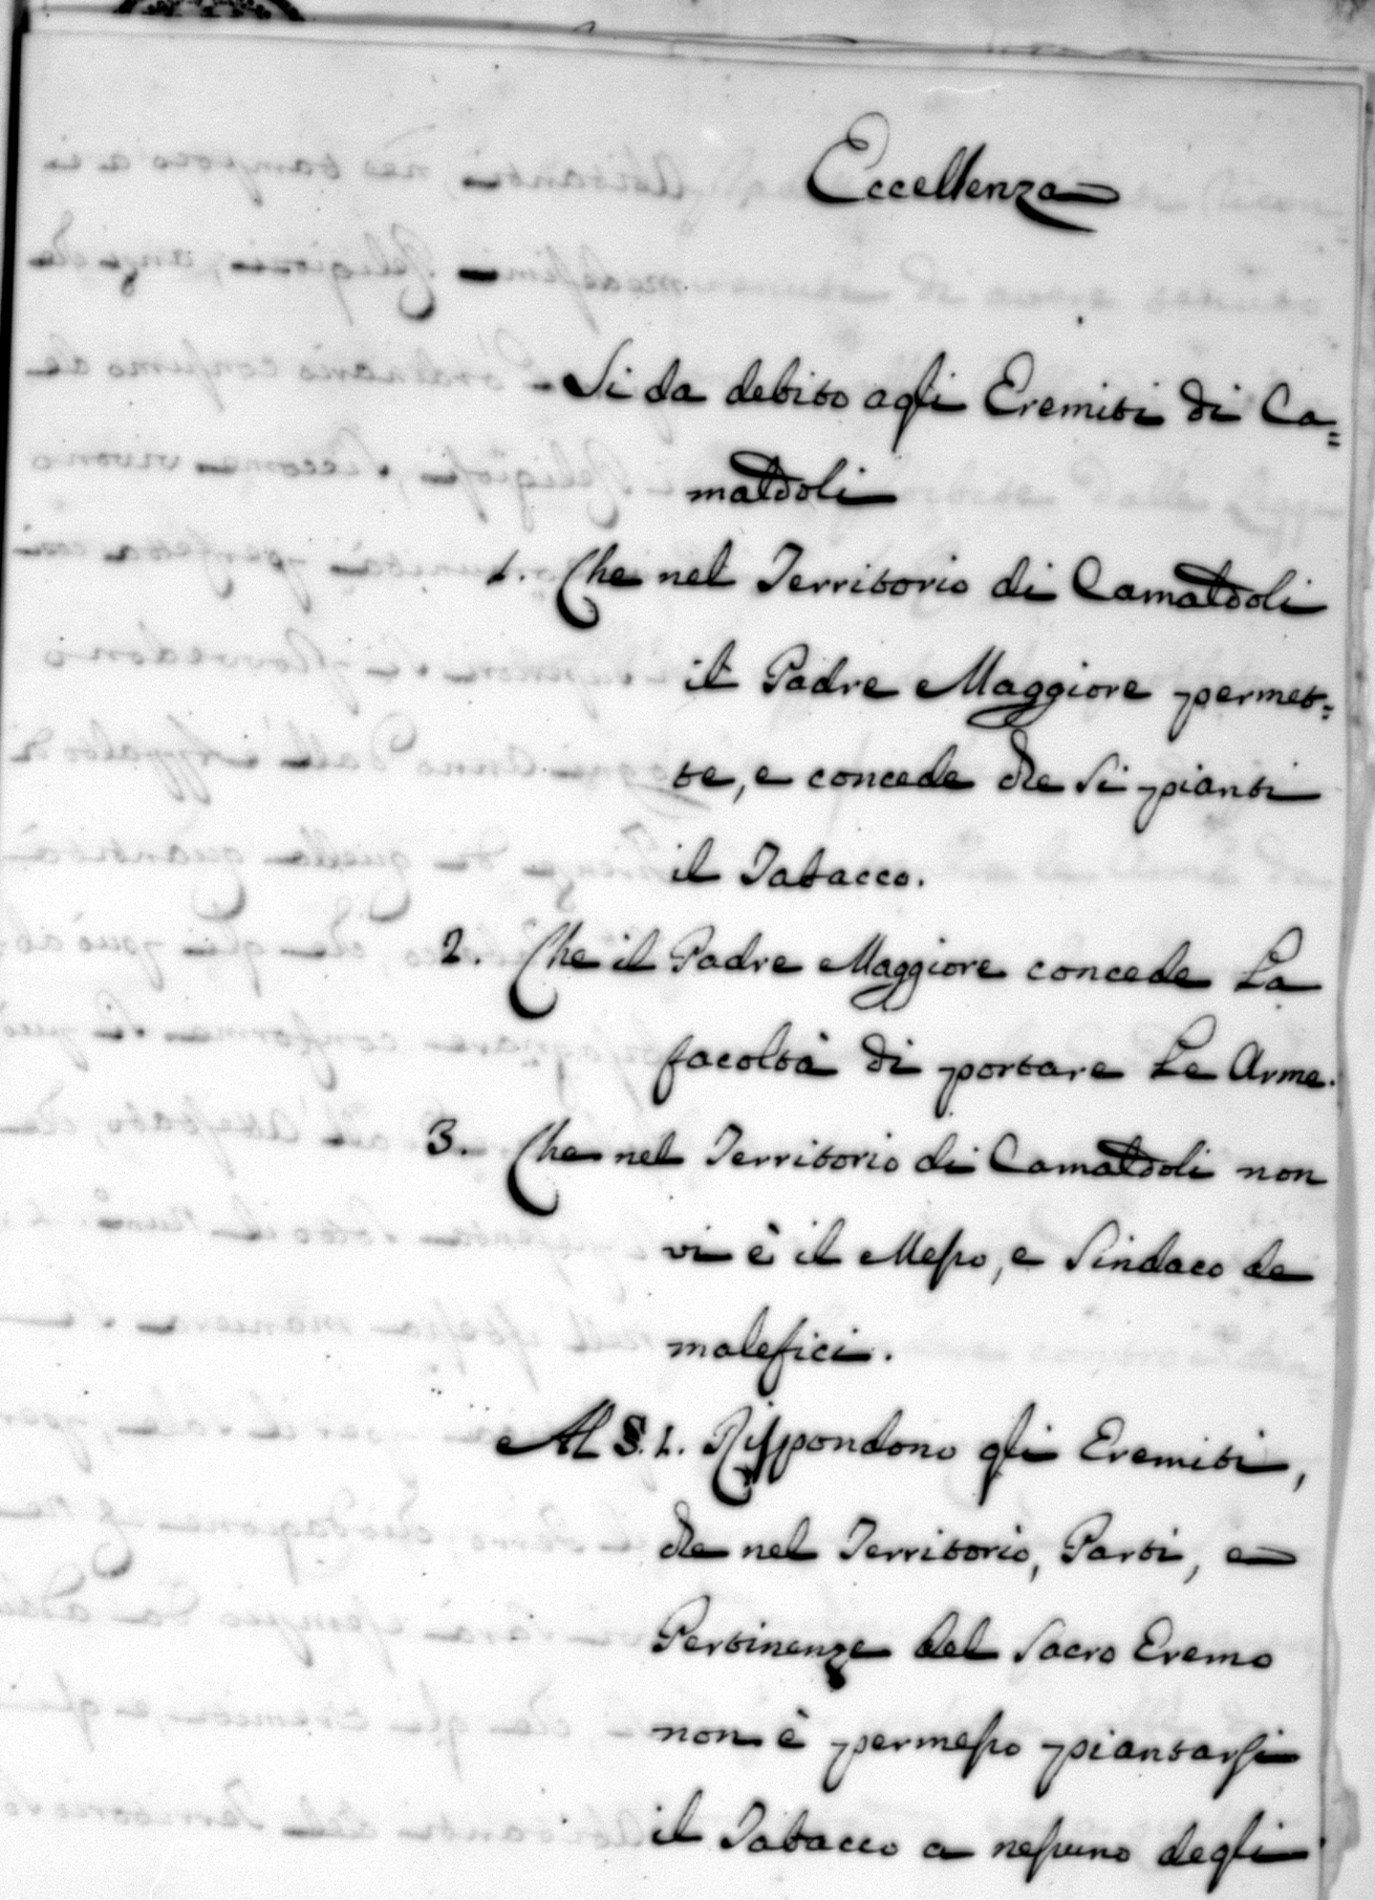 Eccellenza
Si da debito agli Eremiti di Ca=
maldoli
1. Che nel Territorio di Camaldoli
il Padre Maggiore permet=
te, e concede che si pianti
il Tabacco.
2. Che il Padre Maggiore concede la
facoltà di portare le Arme.
3. Che nel Territorio di Camaldoli non
vi è il Messo, e Sindaco de
malefici.
Al §. 1. Rispondono gli Eremiti,
che nel Territorio, Parti, e
Pertinenze del Sacro Eremo
non è permesso piantarsi
il Tabacco a nessuno degli